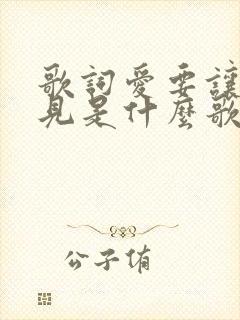 歌詞愛要讓
見是什麼歌
公子侑